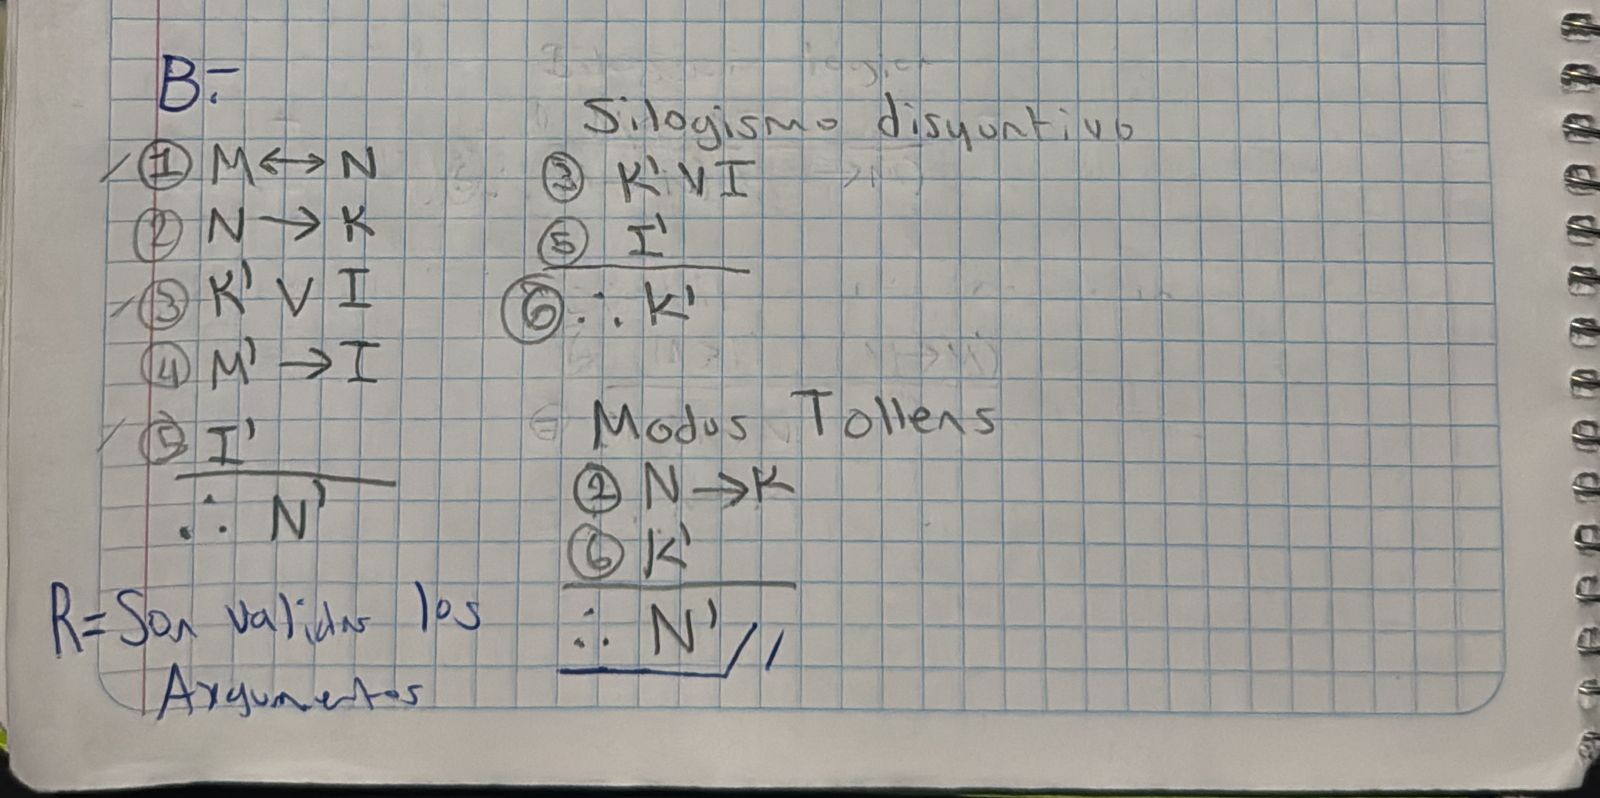 B:-
① M ↔ N
② N → K
③ K' V I
④ M' → I
⑤ I'
∴ N'
R= Son validos los
Argumentos
Silogismo disyuntivo
③ K' V I
⑤ I'
⑥ ∴ K'
Modus Tollens
② N → K
⑥ K'
∴ N' //